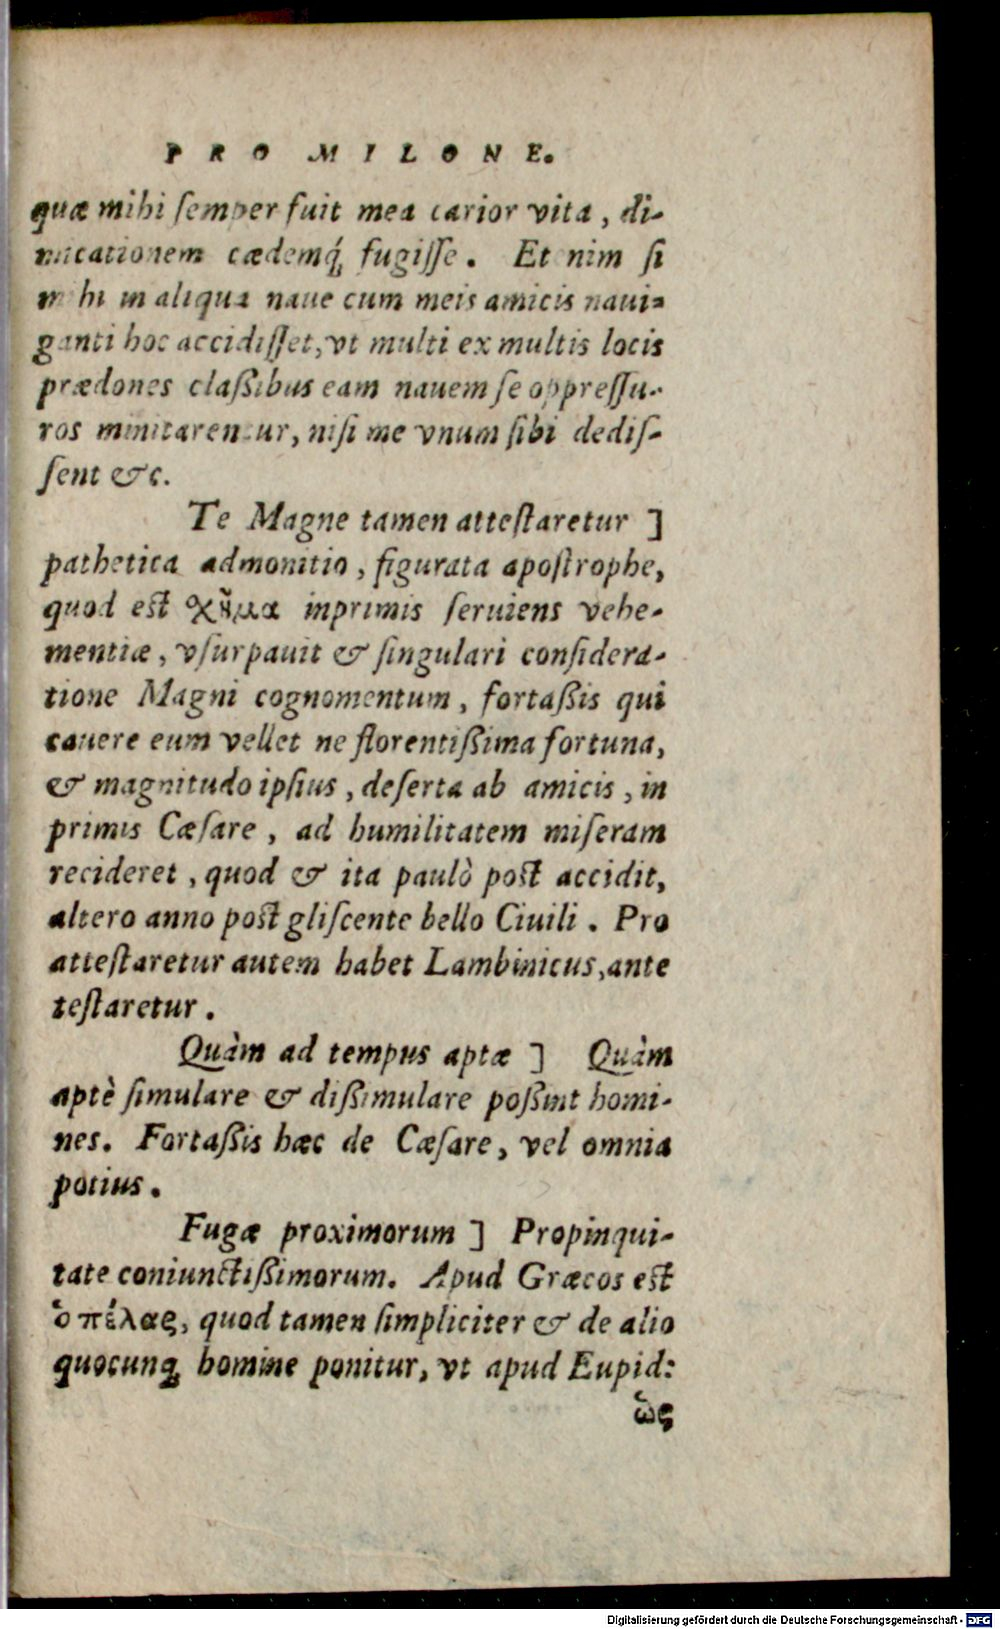 PRO MILONE.
quæ mihi ſemper fuit mea carior vita, di-
micationem cædemq́; fugiſſe. Et nim ſi
mihi in aliqua naue cum meis amicis naui-
ganti hoc accidiſſet, vt multi ex multis locis
prædones claßibus eam nauem ſe oppreſſu-
ros minitarentur, niſi me vnum ſibi dediſ-
ſent &c.
Te Magne tamen atteſtaretur ]
pathetica admonitio, figurata apoſtrophe,
quod eſt χῆμα inprimis ſeruiens vehe-
mentiæ, vſurpauit & ſingulari conſidera-
tione Magni cognomentum, fortaßis qui
cauere eum vellet ne florentißima fortuna,
& magnitudo ipſius, deſerta ab amicis, in
primis Cæſare, ad humilitatem miſeram
recideret, quod & ita paulò poſt accidit,
altero anno poſt gliſcente bello Ciuili. Pro
atteſtaretur autem habet Lambinicus, ante
teſtaretur.
Quàm ad tempus aptæ ] Quàm
aptè ſimulare & dißimulare poßint homi-
nes. Fortaßis hæc de Cæſare, vel omnia
potius.
Fugæ proximorum ] Propinqui-
tate coniunctißimorum. Apud Græcos eſt
ὁ πέλας, quod tamen ſimpliciter & de alio
quocunq; homine ponitur, vt apud Eupid:
ὥς
Digitalisierung gefördert durch die Deutsche Forschungsgemeinschaft - DFG